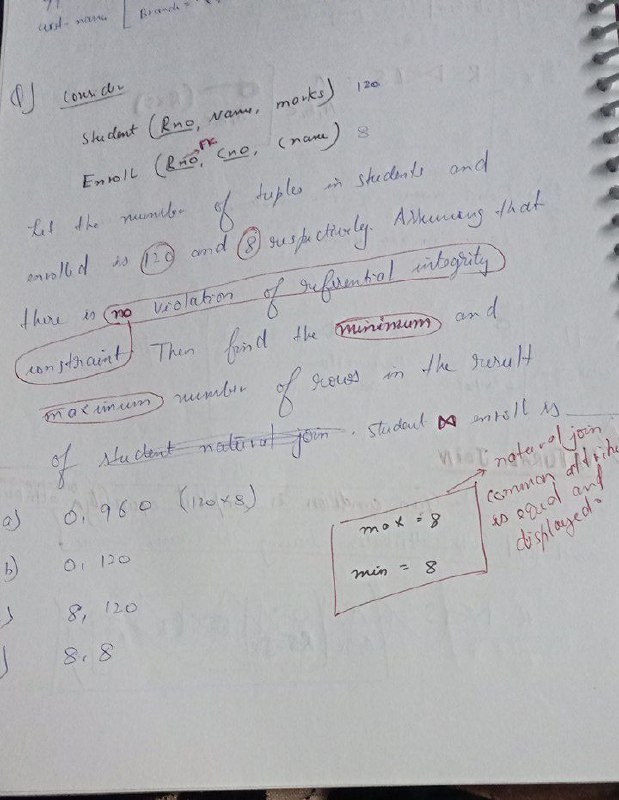 Q) Consider
Student (Rno, Name, marks) 120
FK
Enroll (Rno, Cno, Cname) 8
Let the number of tuples in students and
enrolled is 120 and 8 respectively. Assuming that
there is no violation of referential integrity
constraint. Then find the minimum and
maximum number of rows in the result
of student natural join. student ⋈ enroll is ____
a) 0, 960 (120×8)
b) 0, 120
) 8, 120
) 8, 8
natural join
common attribute
is equal and
displayed.
max = 8
min = 8